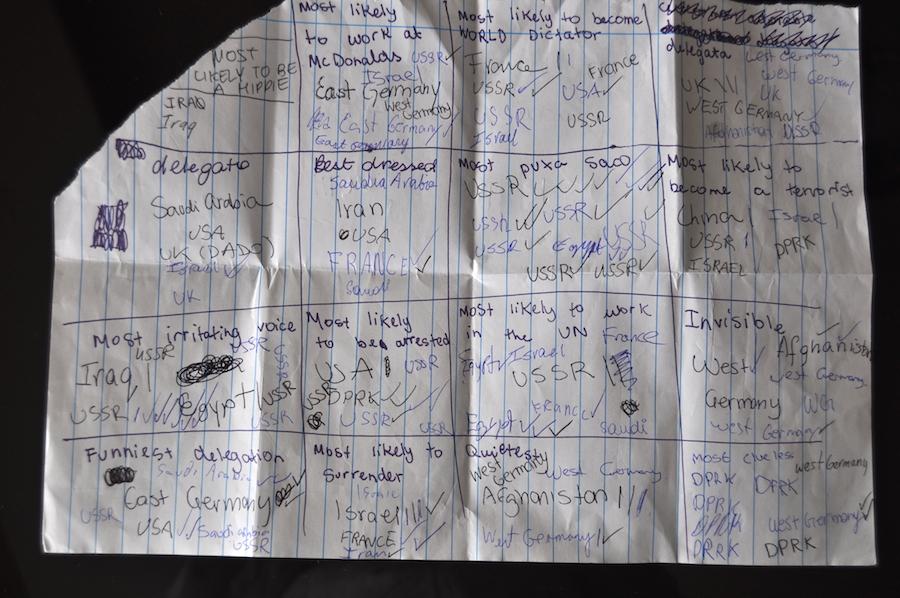 MOST
LIKELY TO BE
A HIPPIE
IRAN
Iraq
Most likely
to work at
McDonalds USSR
Israel
East Germany
West
Germany
East Germany
East Germany
Most likely to become
WORLD Dictator
France France
USSR USA
USSR USSR
Israel
delegata West Germany
West Germany
UK UK
WEST GERMANY
Afghanistan USSR
delegato
Saudi Arabia
USA
UK (DADO)
Israel
UK
Best dressed
Saudia Arabia
Iran
USA
FRANCE
Saudi
Most puxa saco
USSR
USSR USSR USSR
USSR Egypt
USSR USSR
Most likely to
become a terrorist
China Israel
USSR DPRK
ISRAEL
Most irritating voice
USSR USSR
Iraq USSR
USSR Egypt USSR
USSR
Most likely
to be arrested
USA USSR
USSR DPRK
USSR USSR
Most likely to work
in the UN France
Egypt Israel
USSR
FRANCE
Egypt Saudi
Invisible
Afghanistan
West West Germany
Germany WG
West Germany
Funniest delegation
Saudi Arabia
East Germany
USSR
USA Saudi Arabia
USSR
Most likely to
Surrender
Israel
FRANCE
Iran
Quietest
West
Germany West Germany
Afghaniston
West Germany
Most clueles
West Germany
DPRK DPRK
DPRK
DPRK West Germany
DPRK DPRK